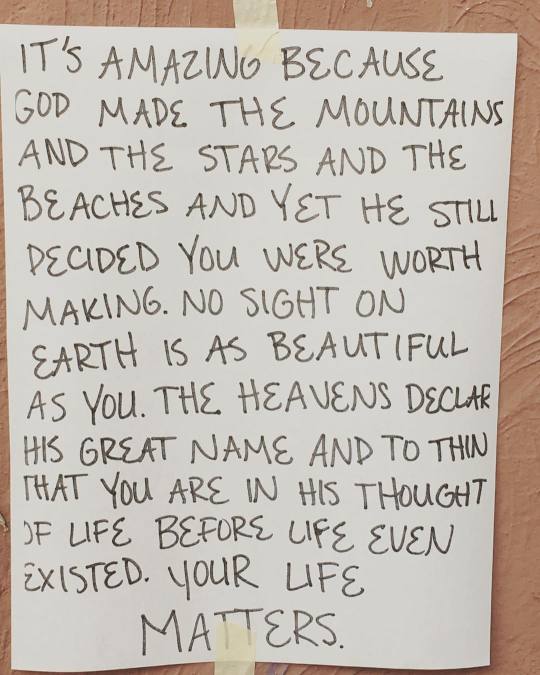 IT'S AMAZING BECAUSE
GOD MADE THE MOUNTAINS
AND THE STARS AND THE
BEACHES AND YET HE STILL
DECIDED YOU WERE WORTH
MAKING. NO SIGHT ON
EARTH IS AS BEAUTIFUL
AS YOU. THE HEAVENS DECLAR
HIS GREAT NAME AND TO THIN
THAT YOU ARE IN HIS THOUGHT
OF LIFE BEFORE LIFE EVEN
EXISTED. YOUR LIFE
MATTERS.